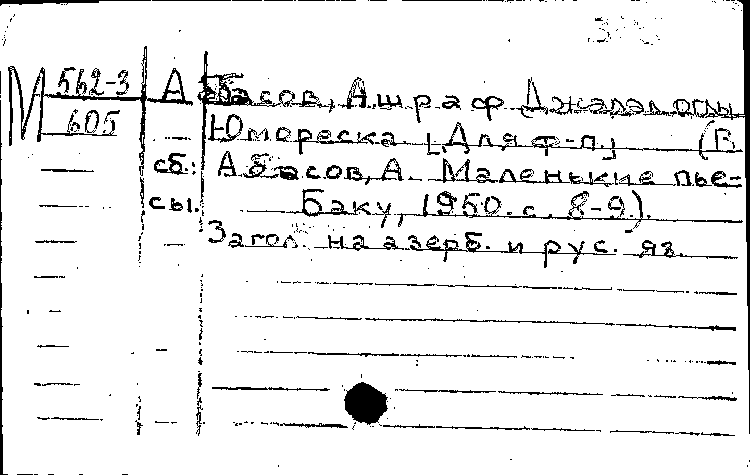 М 562-3 Аббасов, Ашраф Джалал оглы
605 Юмореска. [Для ф-п.] (В
сб.: Аббасов, А. Маленькие пье-
сы. Баку, 1950. с. 8-9).
Загол. на азерб. и рус. яз.